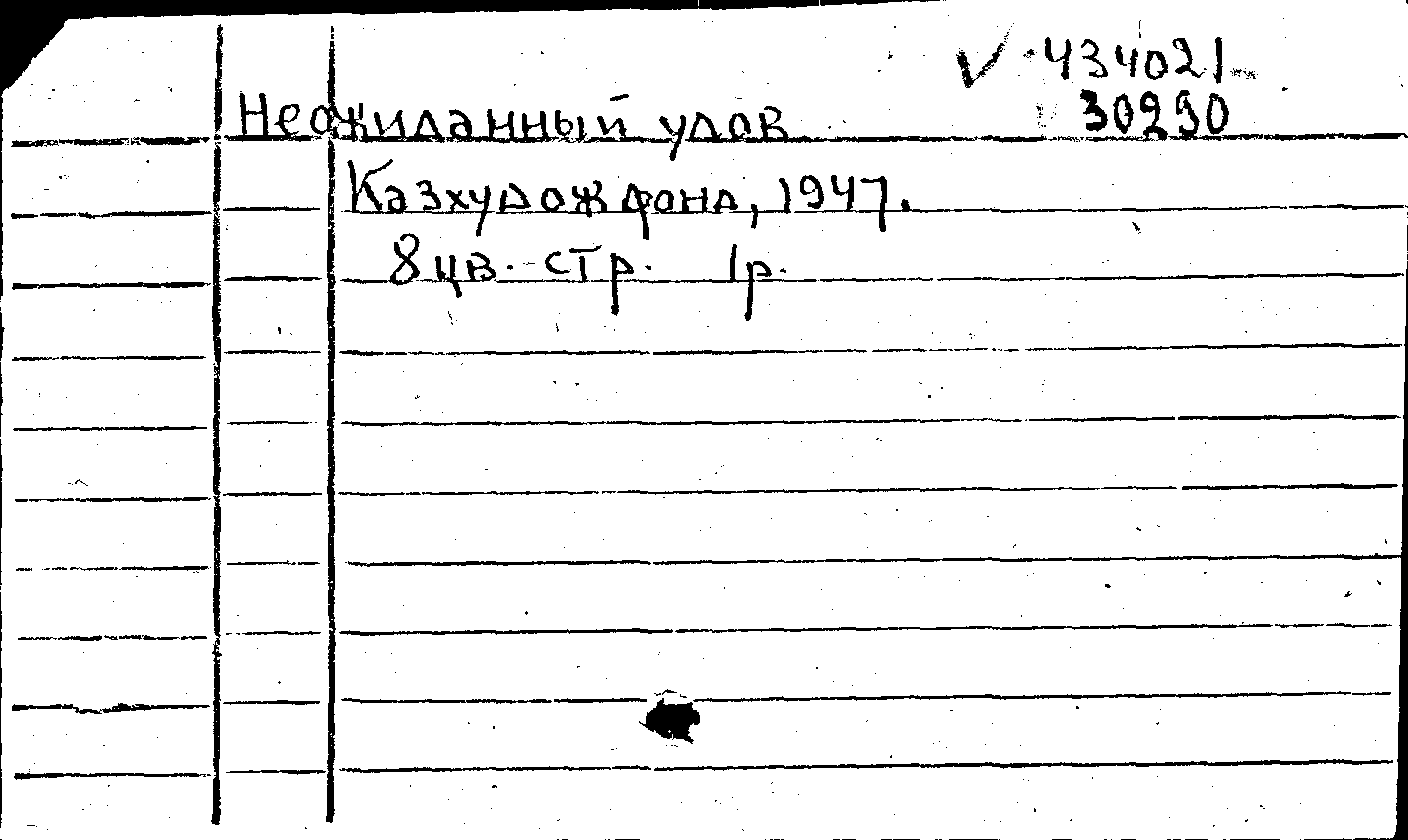 V 434021
30290
Неожиданный улов
Казхудожфонд, 1947.
8 цв. стр. 1р.